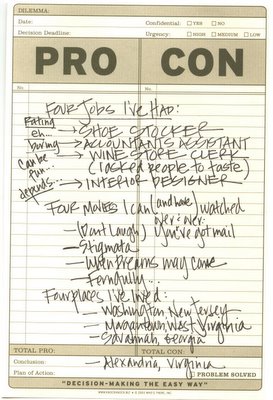 DILEMMA:
Date: Confidential: YES NO
Decision Deadline: Urgency: HIGH MEDIUM LOW
PRO CON
No. No.
Four Jobs I've HAD:
Rating
eh... → SHOE STOCKER
boring → ACCOUNTANTS ASSISTANT
can be fun... → WINE STORE CLERK
(I asked people to taste)
depends... → INTERIOR DESIGNER
Four Movies I can (and have) watched
over & over:
- (Don't Laugh) You've got mail
- Stigmata
- When Dreams may come
- Ferngully...
Four places I've lived:
- Washington, New Jersey
- Morgantown, West Virginia
- Savannah, Georgia
- Alexandria, Virginia
TOTAL PRO: TOTAL CON:
Conclusion:
Plan of Action: PROBLEM SOLVED
"DECISION-MAKING THE EASY WAY"